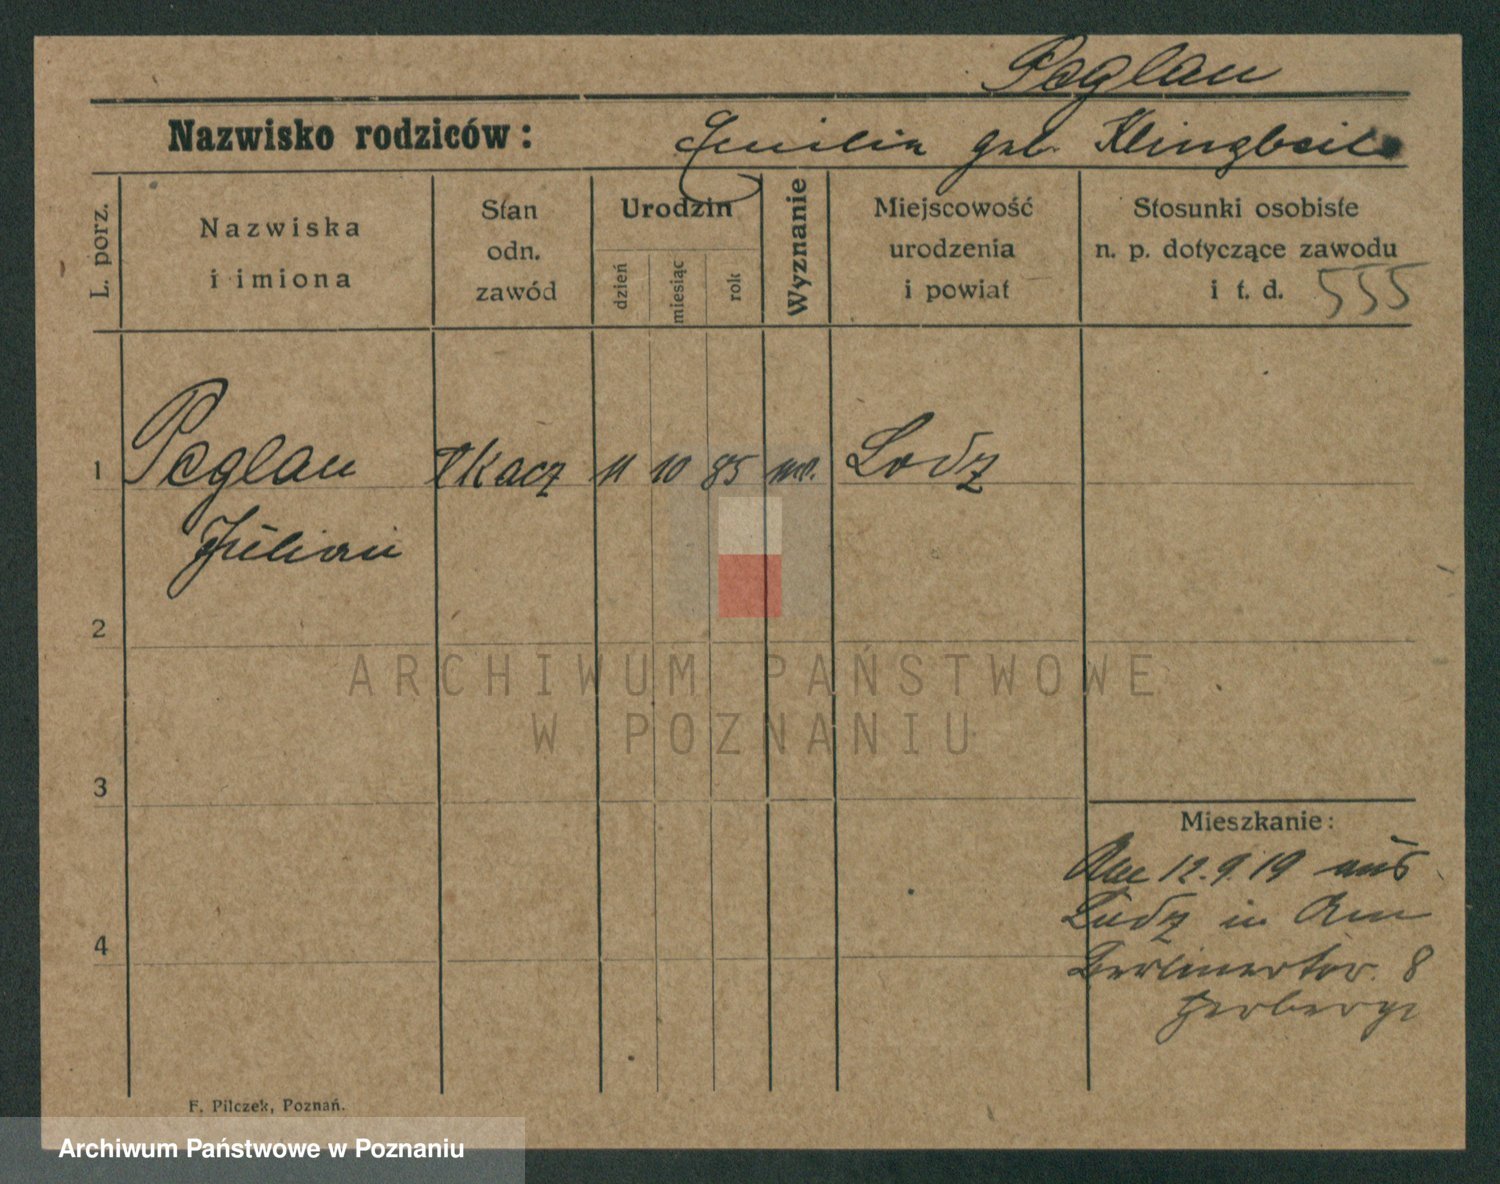 Peglau
Nazwisko rodziców: Emilia geb. Klingbeil
L. porz.
Nazwiska
i imiona
Stan
odn.
zawód
Urodzin
dzień
miesiąc
rok
Wyznanie
Miejscowość
urodzenia
i powiat
Stosunki osobiste
n. p. dotyczące zawodu
i t. d. 555
1 Peglau Tkacz 11 10 85 Lodz
Julian
2
ARCHIWUM PAŃSTWOWE
W POZNANIU
3
Mieszkanie:
12.9.19 aus
Lodz in
4
Berlinertor. 8
Herberge
F. Pilczek, Poznań.
Archiwum Państwowe w Poznaniu